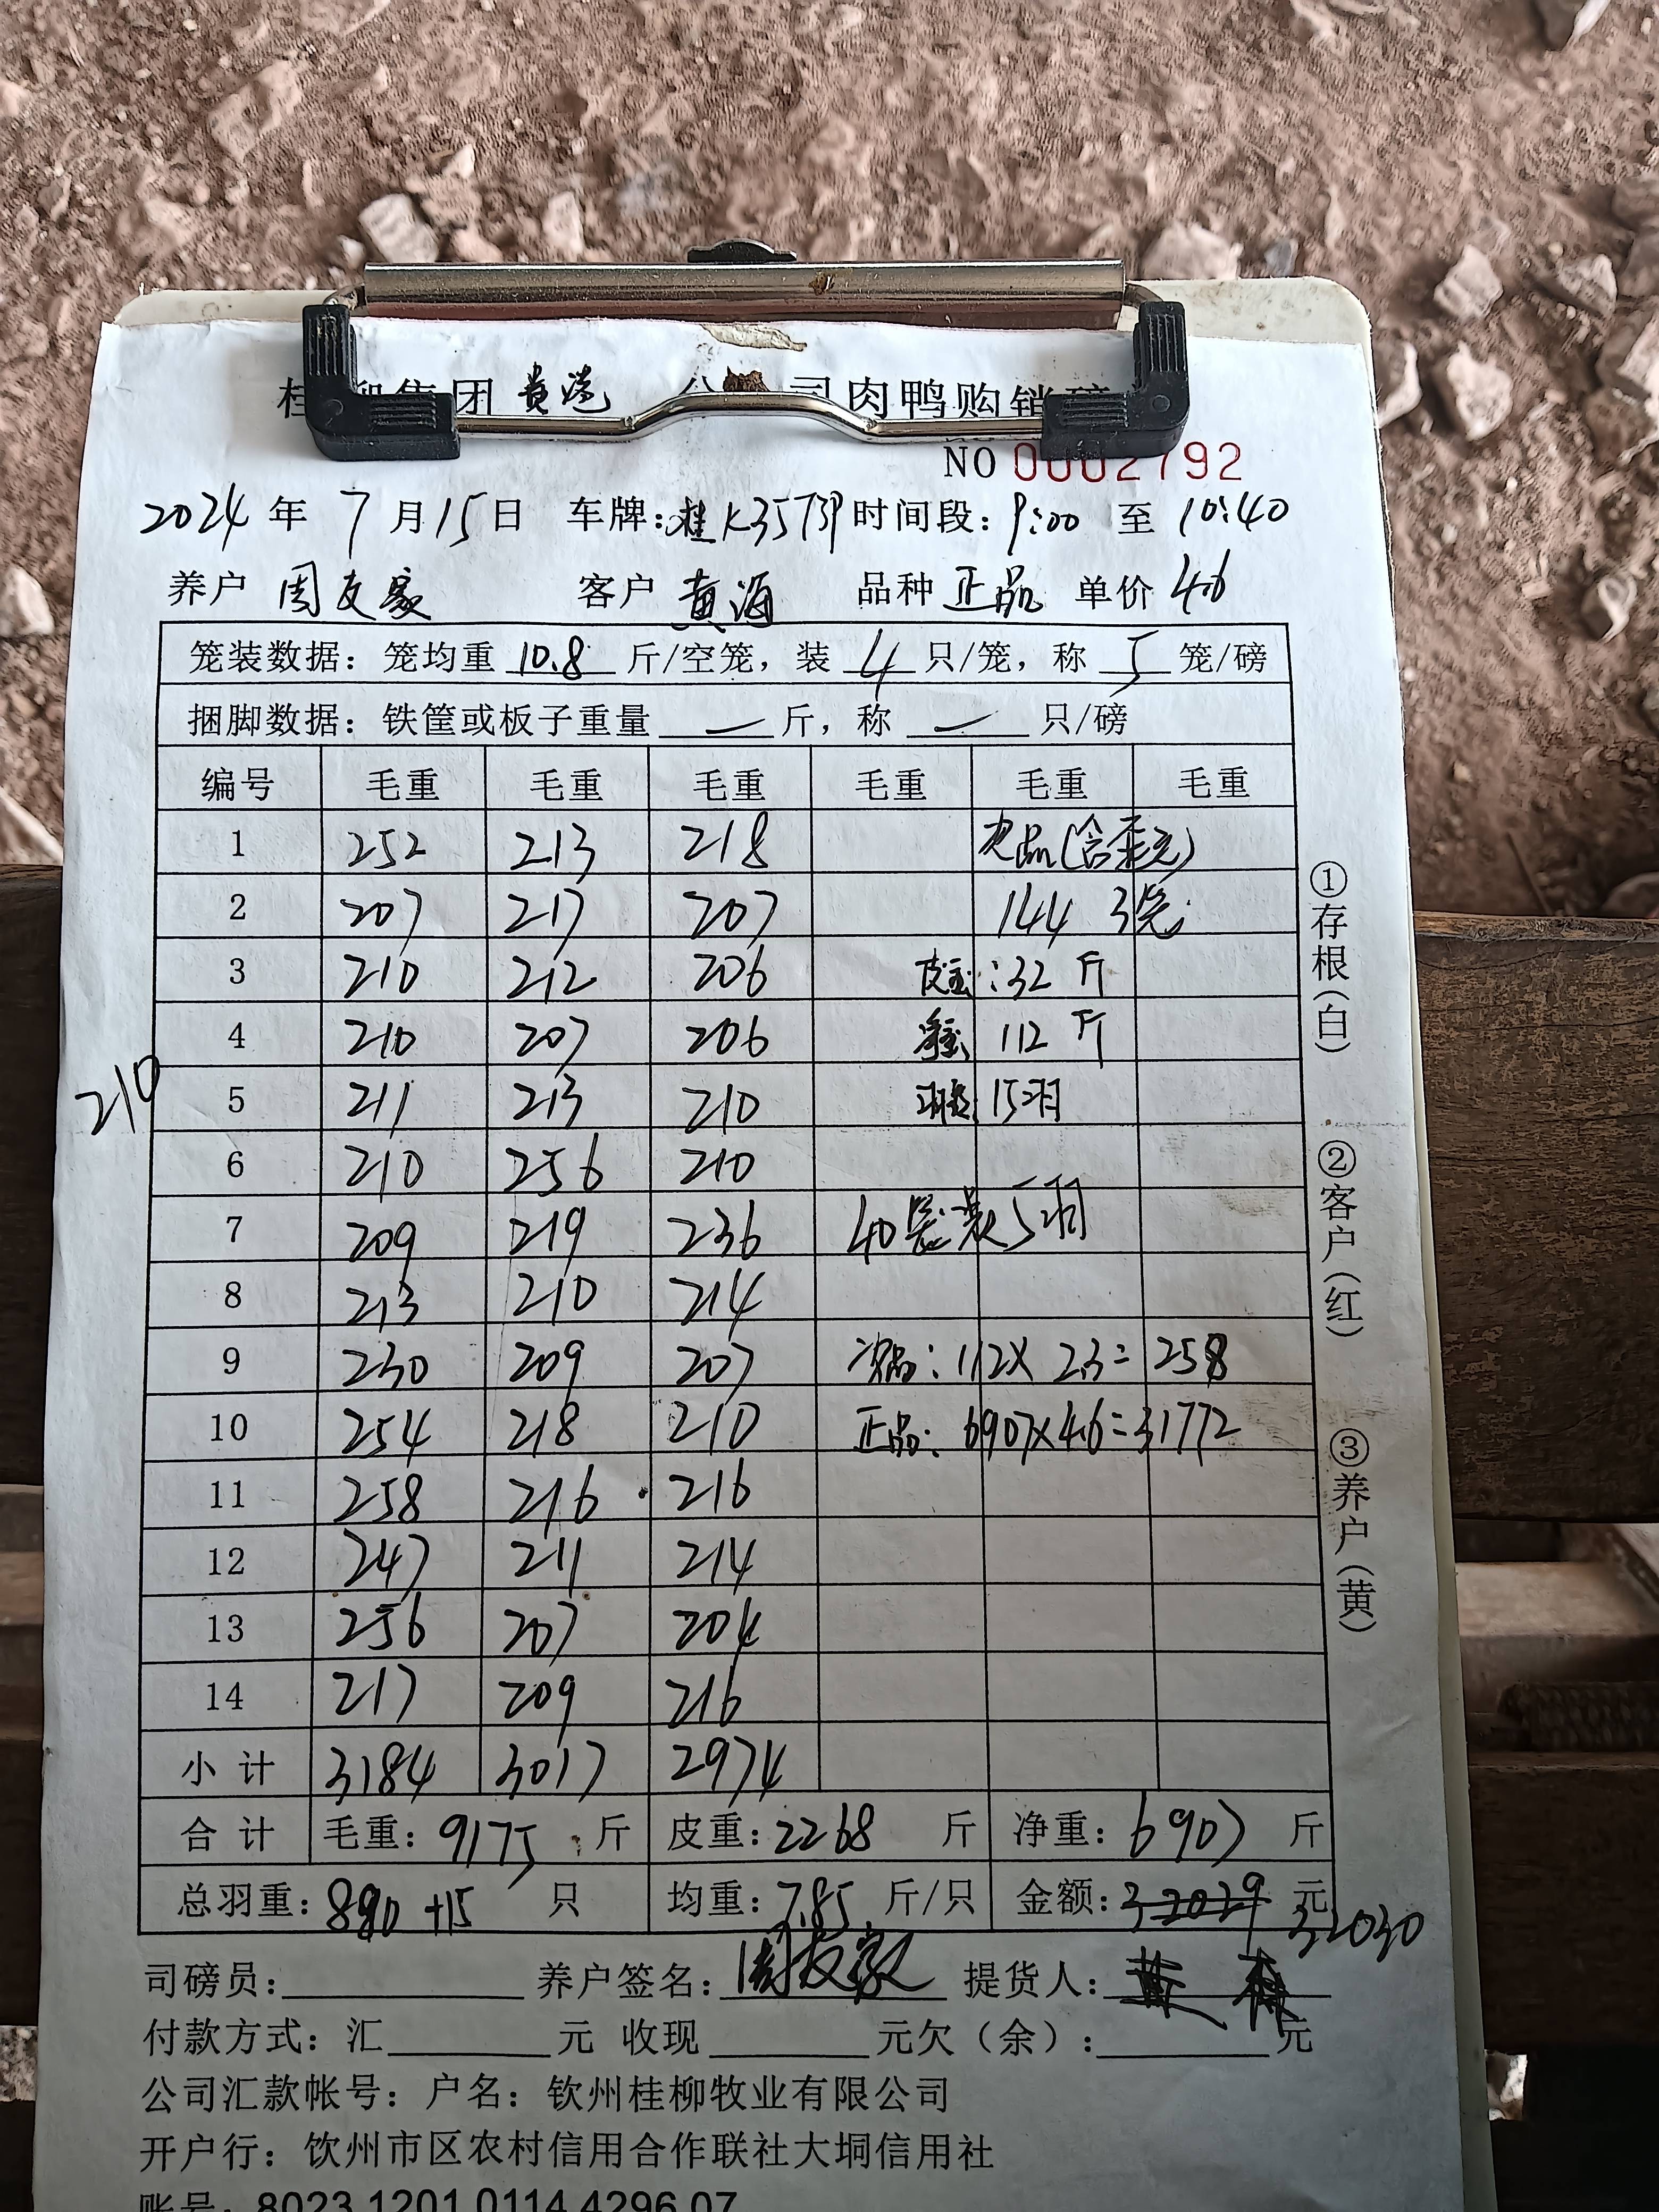 桂柳集团 贵港 公司肉鸭购销磅
NO 0002792
2024 年 7 月 15 日 车牌: 桂K3573P 时间段: 9:00 至 10:40
养户 周友家 客户 黄海 品种 正品 单价 4.6
笼装数据: 笼均重 10.8 斤/空笼, 装 4 只/笼, 称 5 笼/磅
捆脚数据: 铁筐或板子重量 — 斤, 称 — 只/磅
编号 毛重 毛重 毛重 毛重 毛重 毛重
1 252 213 218 次品(含歪壳)
2 207 217 207 144 3笼
3 210 212 206 皮重: 32 斤
4 210 207 206 净重 112 斤
210
5 211 213 210 羽数 15羽
6 210 256 210
7 209 219 236 40笼装5羽
8 213 210 214
9 230 209 207 次品: 112×2.3=258
10 254 218 210 正品: 6907×4.6=31772
11 258 216 216
12 247 211 214
13 256 207 204
14 217 209 216
小计 3184 3017 2974
合计 毛重: 9175 斤 皮重: 2268 斤 净重: 6907 斤
总羽重: 880 +15 只 均重: 7.85 斤/只 金额: 32029 元
32030
司磅员: 养户签名: 周友家 提货人:
付款方式: 汇 元 收现 元欠(余): 元
公司汇款帐号: 户名: 钦州桂柳牧业有限公司
开户行: 钦州市区农村信用合作联社大垌信用社
账号: 8023 1201 0114 4296 07
①存根(白)
②客户(红)
③养户(黄)